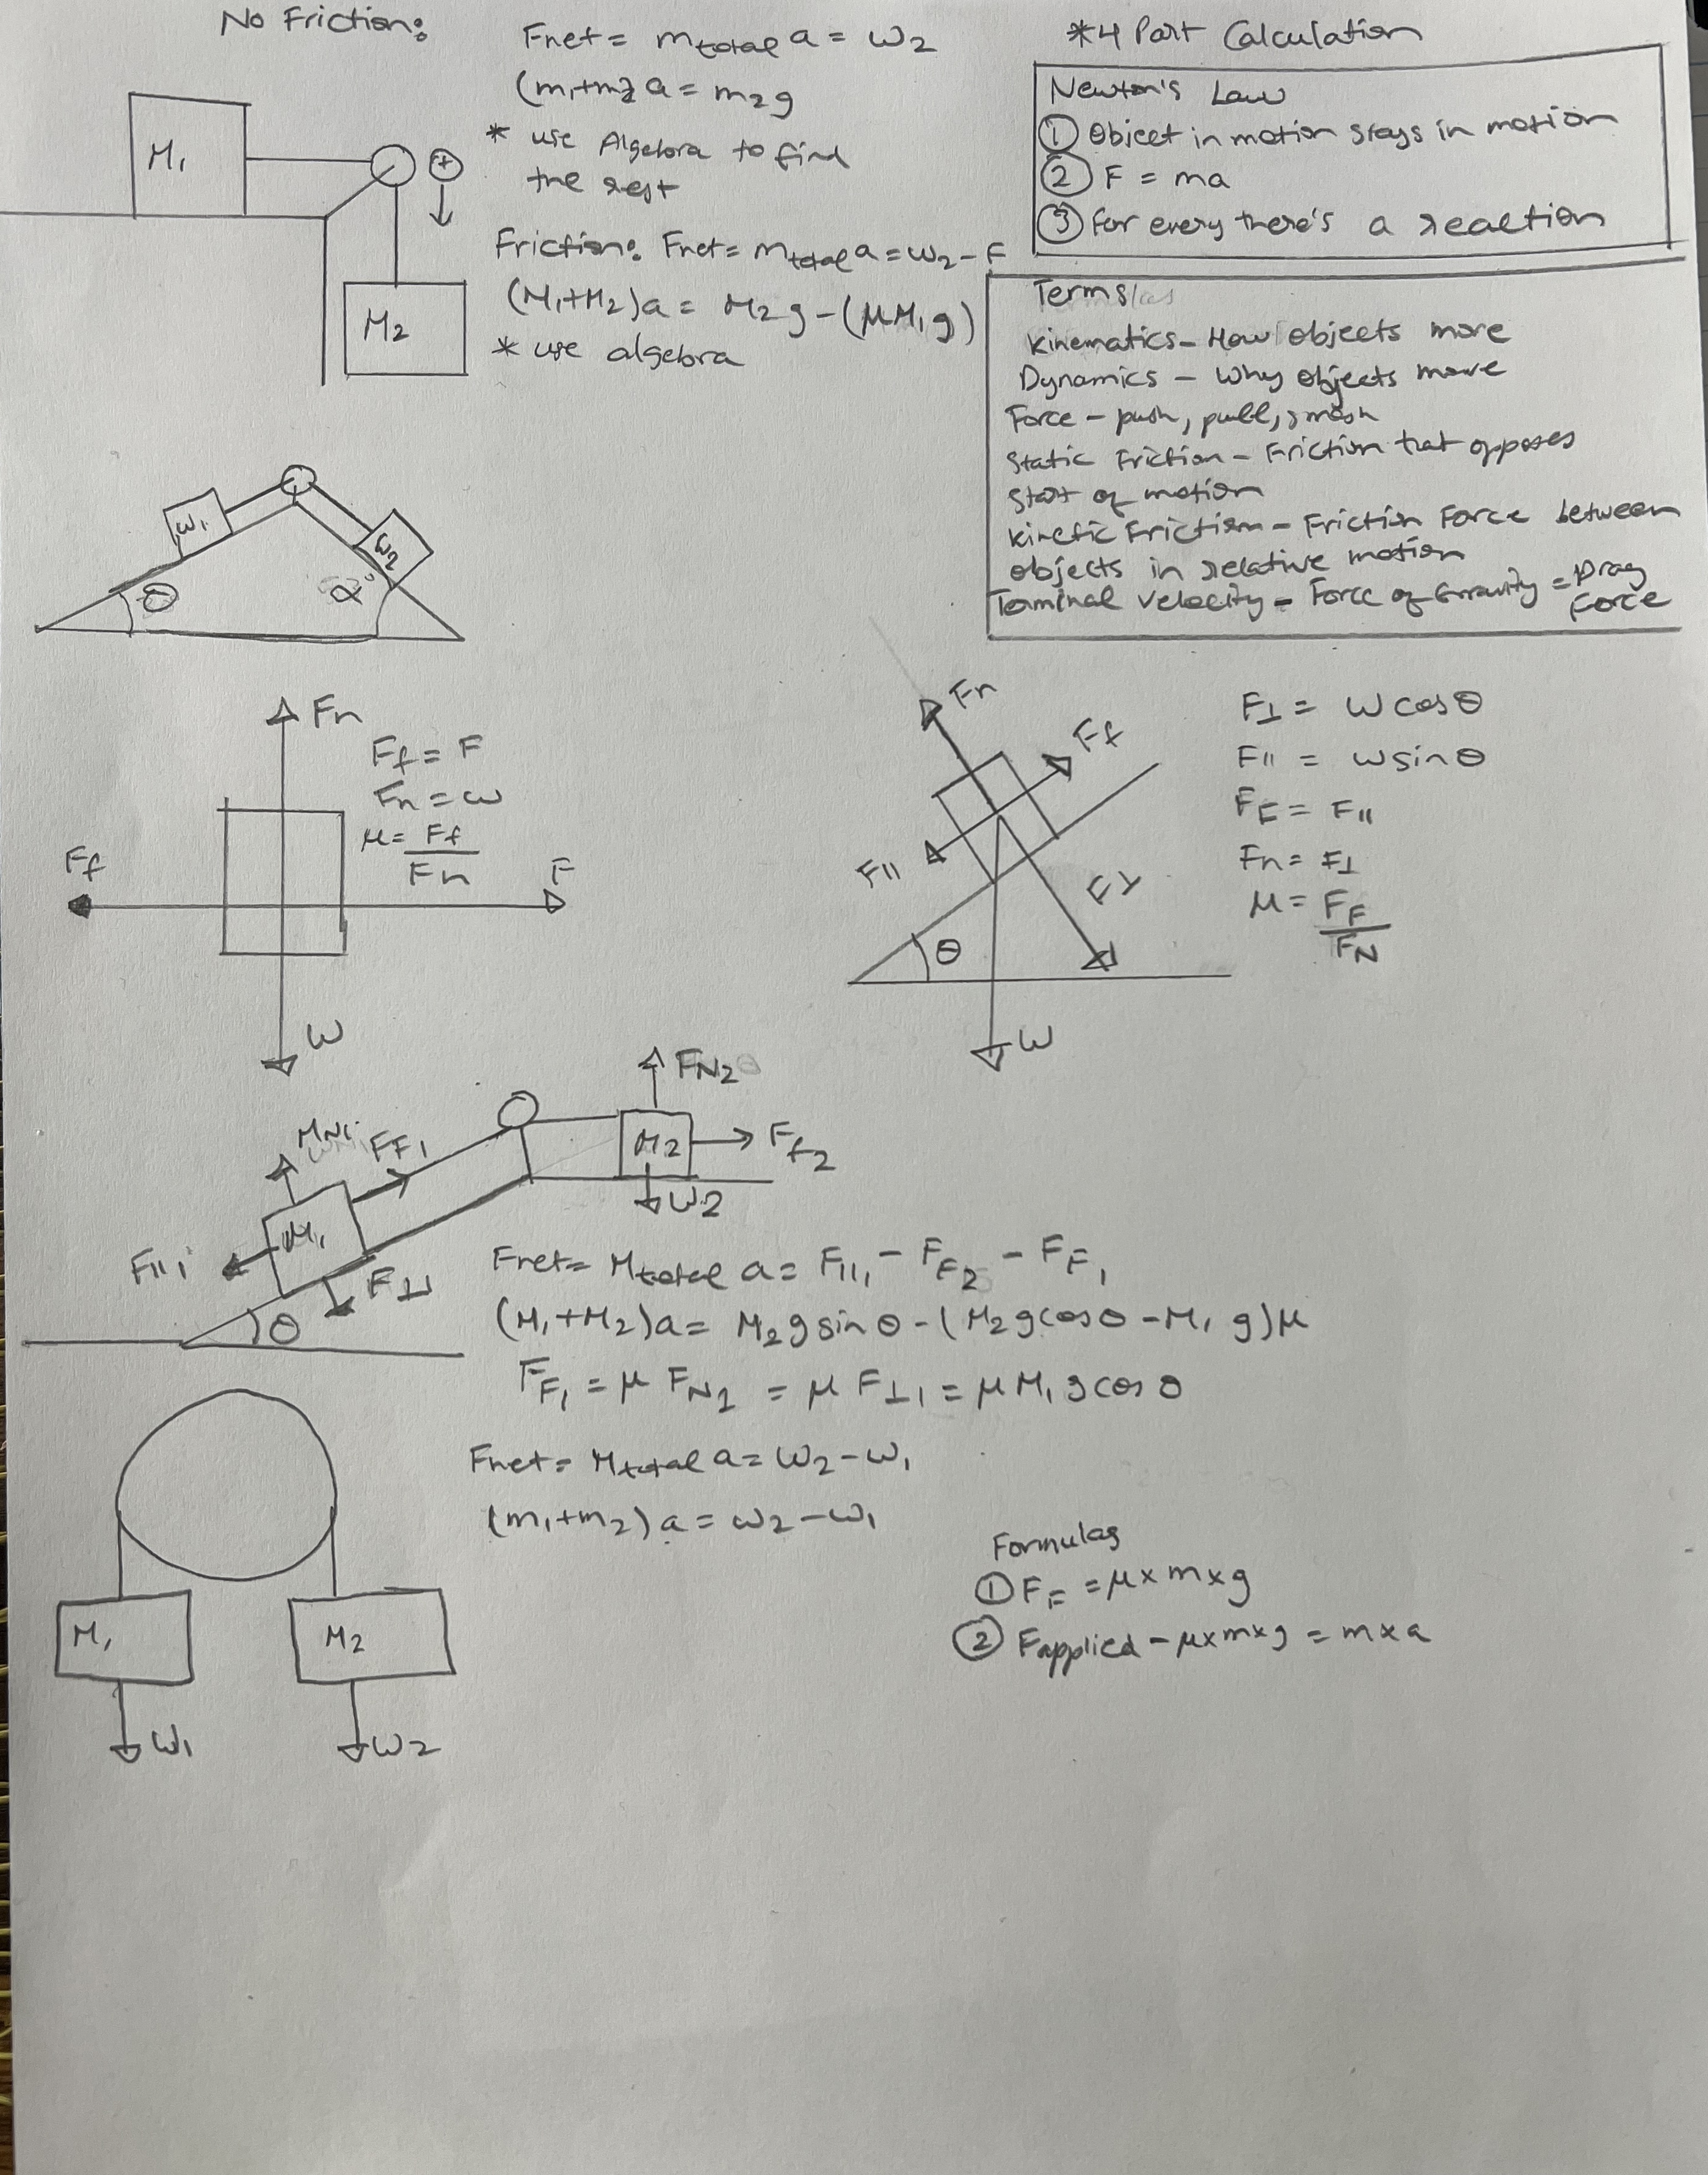 No Friction:
Fnet = mtotal a = w2
(m1+m2) a = m2g
* use Algebra to find
the rest
M1
+
M2
Friction: Fnet = mtotal a = w2 - F
(M1+M2)a = M2g - (μM1g)
* use algebra
*4 Part Calculation
Newton's Law
① Object in motion stays in motion
② F = ma
③ For every there's a reaction
Terms
Kinematics - How objects move
Dynamics - Why objects move
Force - push, pull, smash
Static Friction - Friction that opposes
start of motion
Kinetic Friction - Friction Force between
objects in relative motion
Terminal velocity - Force of Gravity = Drag
Force
w1
w2
θ
α
Fn
Ff = F
Fn = w
μ = Ff
Fn
Ff
F
W
Fn
Ff
F||
F⊥
θ
W
F⊥ = w cosθ
F|| = w sinθ
FF = F||
Fn = F⊥
μ = FF
FN
MN1
FF1
M1
F||1
F⊥1
θ
FN2
M2
Ff2
W2
Fnet = Mtotal a = F||1 - FF2 - FF1
(M1+M2)a = M2g sinθ - (M2g cosθ - M1 g)μ
FF1 = μ FN1 = μ F⊥1 = μM1 g cosθ
Fnet = Mtotal a = w2 - w1
(m1+m2) a = w2 - w1
M1
M2
W1
W2
Formulas
① FF = μ x m x g
② Fapplied - μxmxg = m x a